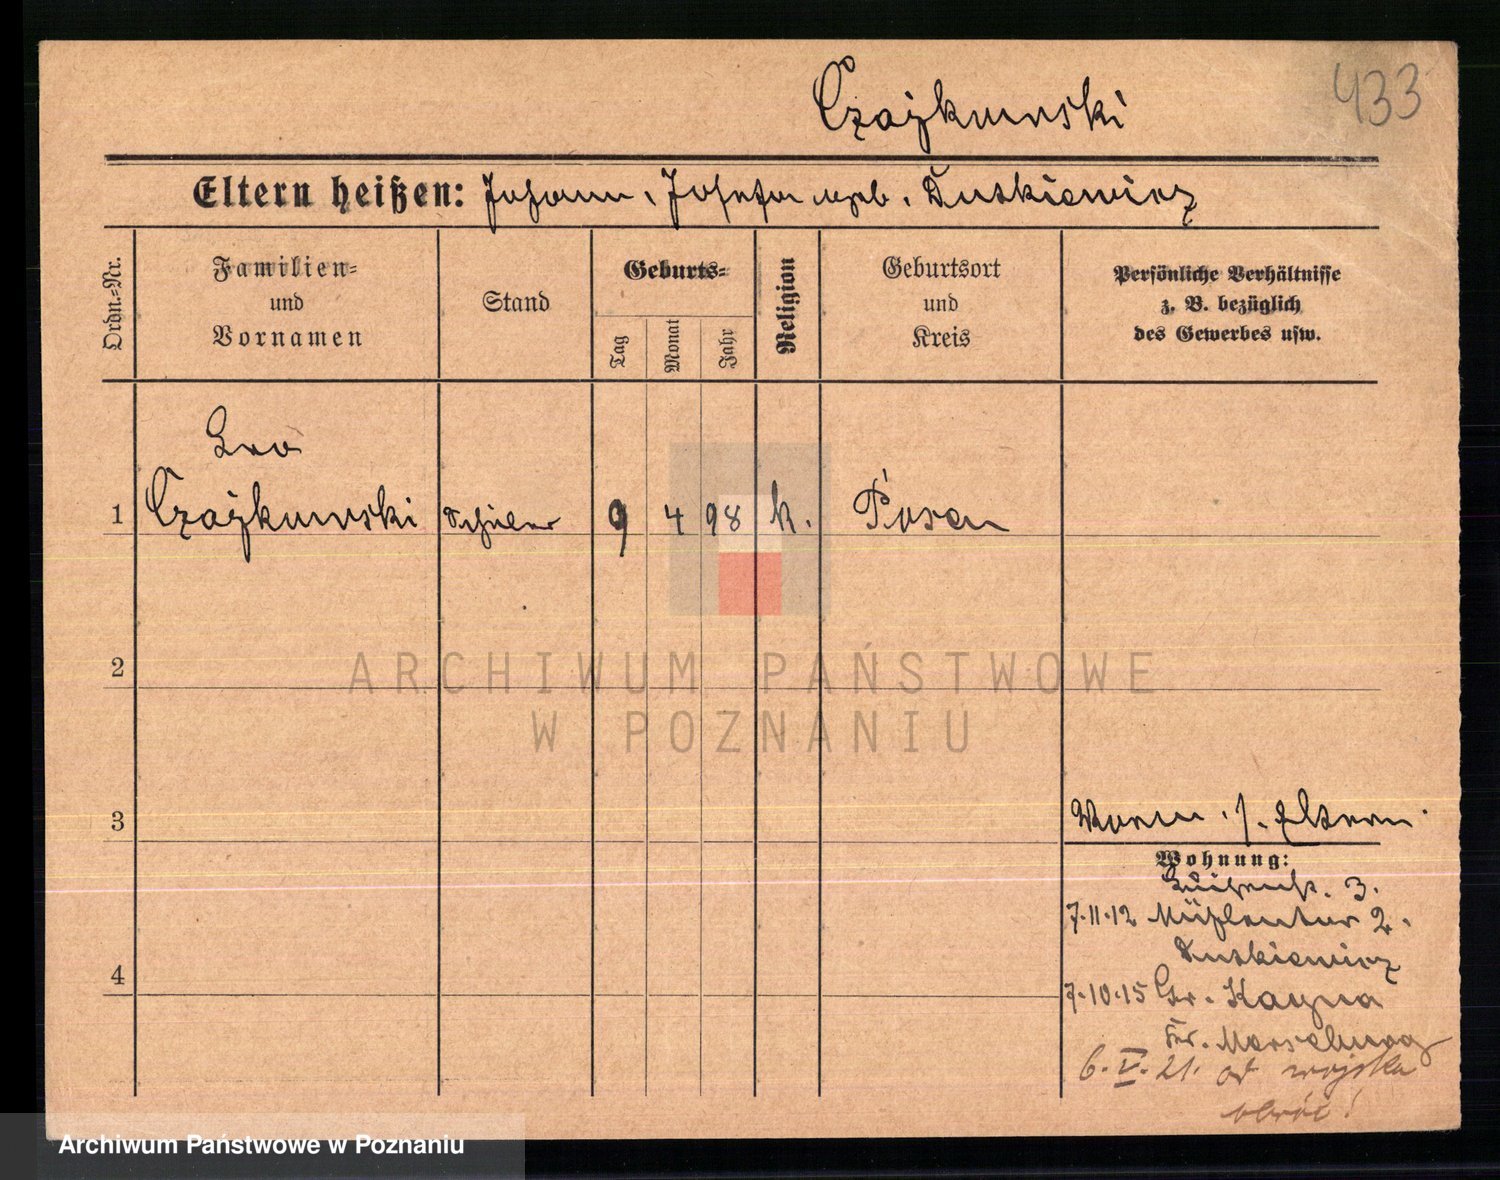 Czajkowski
433
Eltern heißen: Johann, Josefa geb. Dutkiewicz
Ordn.-Nr.
Familien-
und
Vornamen
Stand
Geburts-
Tag
Monat
Jahr
Religion
Geburtsort
und
Kreis
Persönliche Verhältnisse
z. B. bezüglich
des Gewerbes usw.
Leo
1 Czajkowski Schüler 9 4 98 k. Posen
2
ARCHIWUM PAŃSTWOWE
W POZNANIU
3
Vorm. s. Eltern.
Wohnung:
Luisenstr. 3.
7.11.12 Mühlentor 2.
Dutkiewicz
4
7.10.15 Gr. Kayna
Kr. Merseburg
6.V.21. od wojska
obróć!
Archiwum Państwowe w Poznaniu